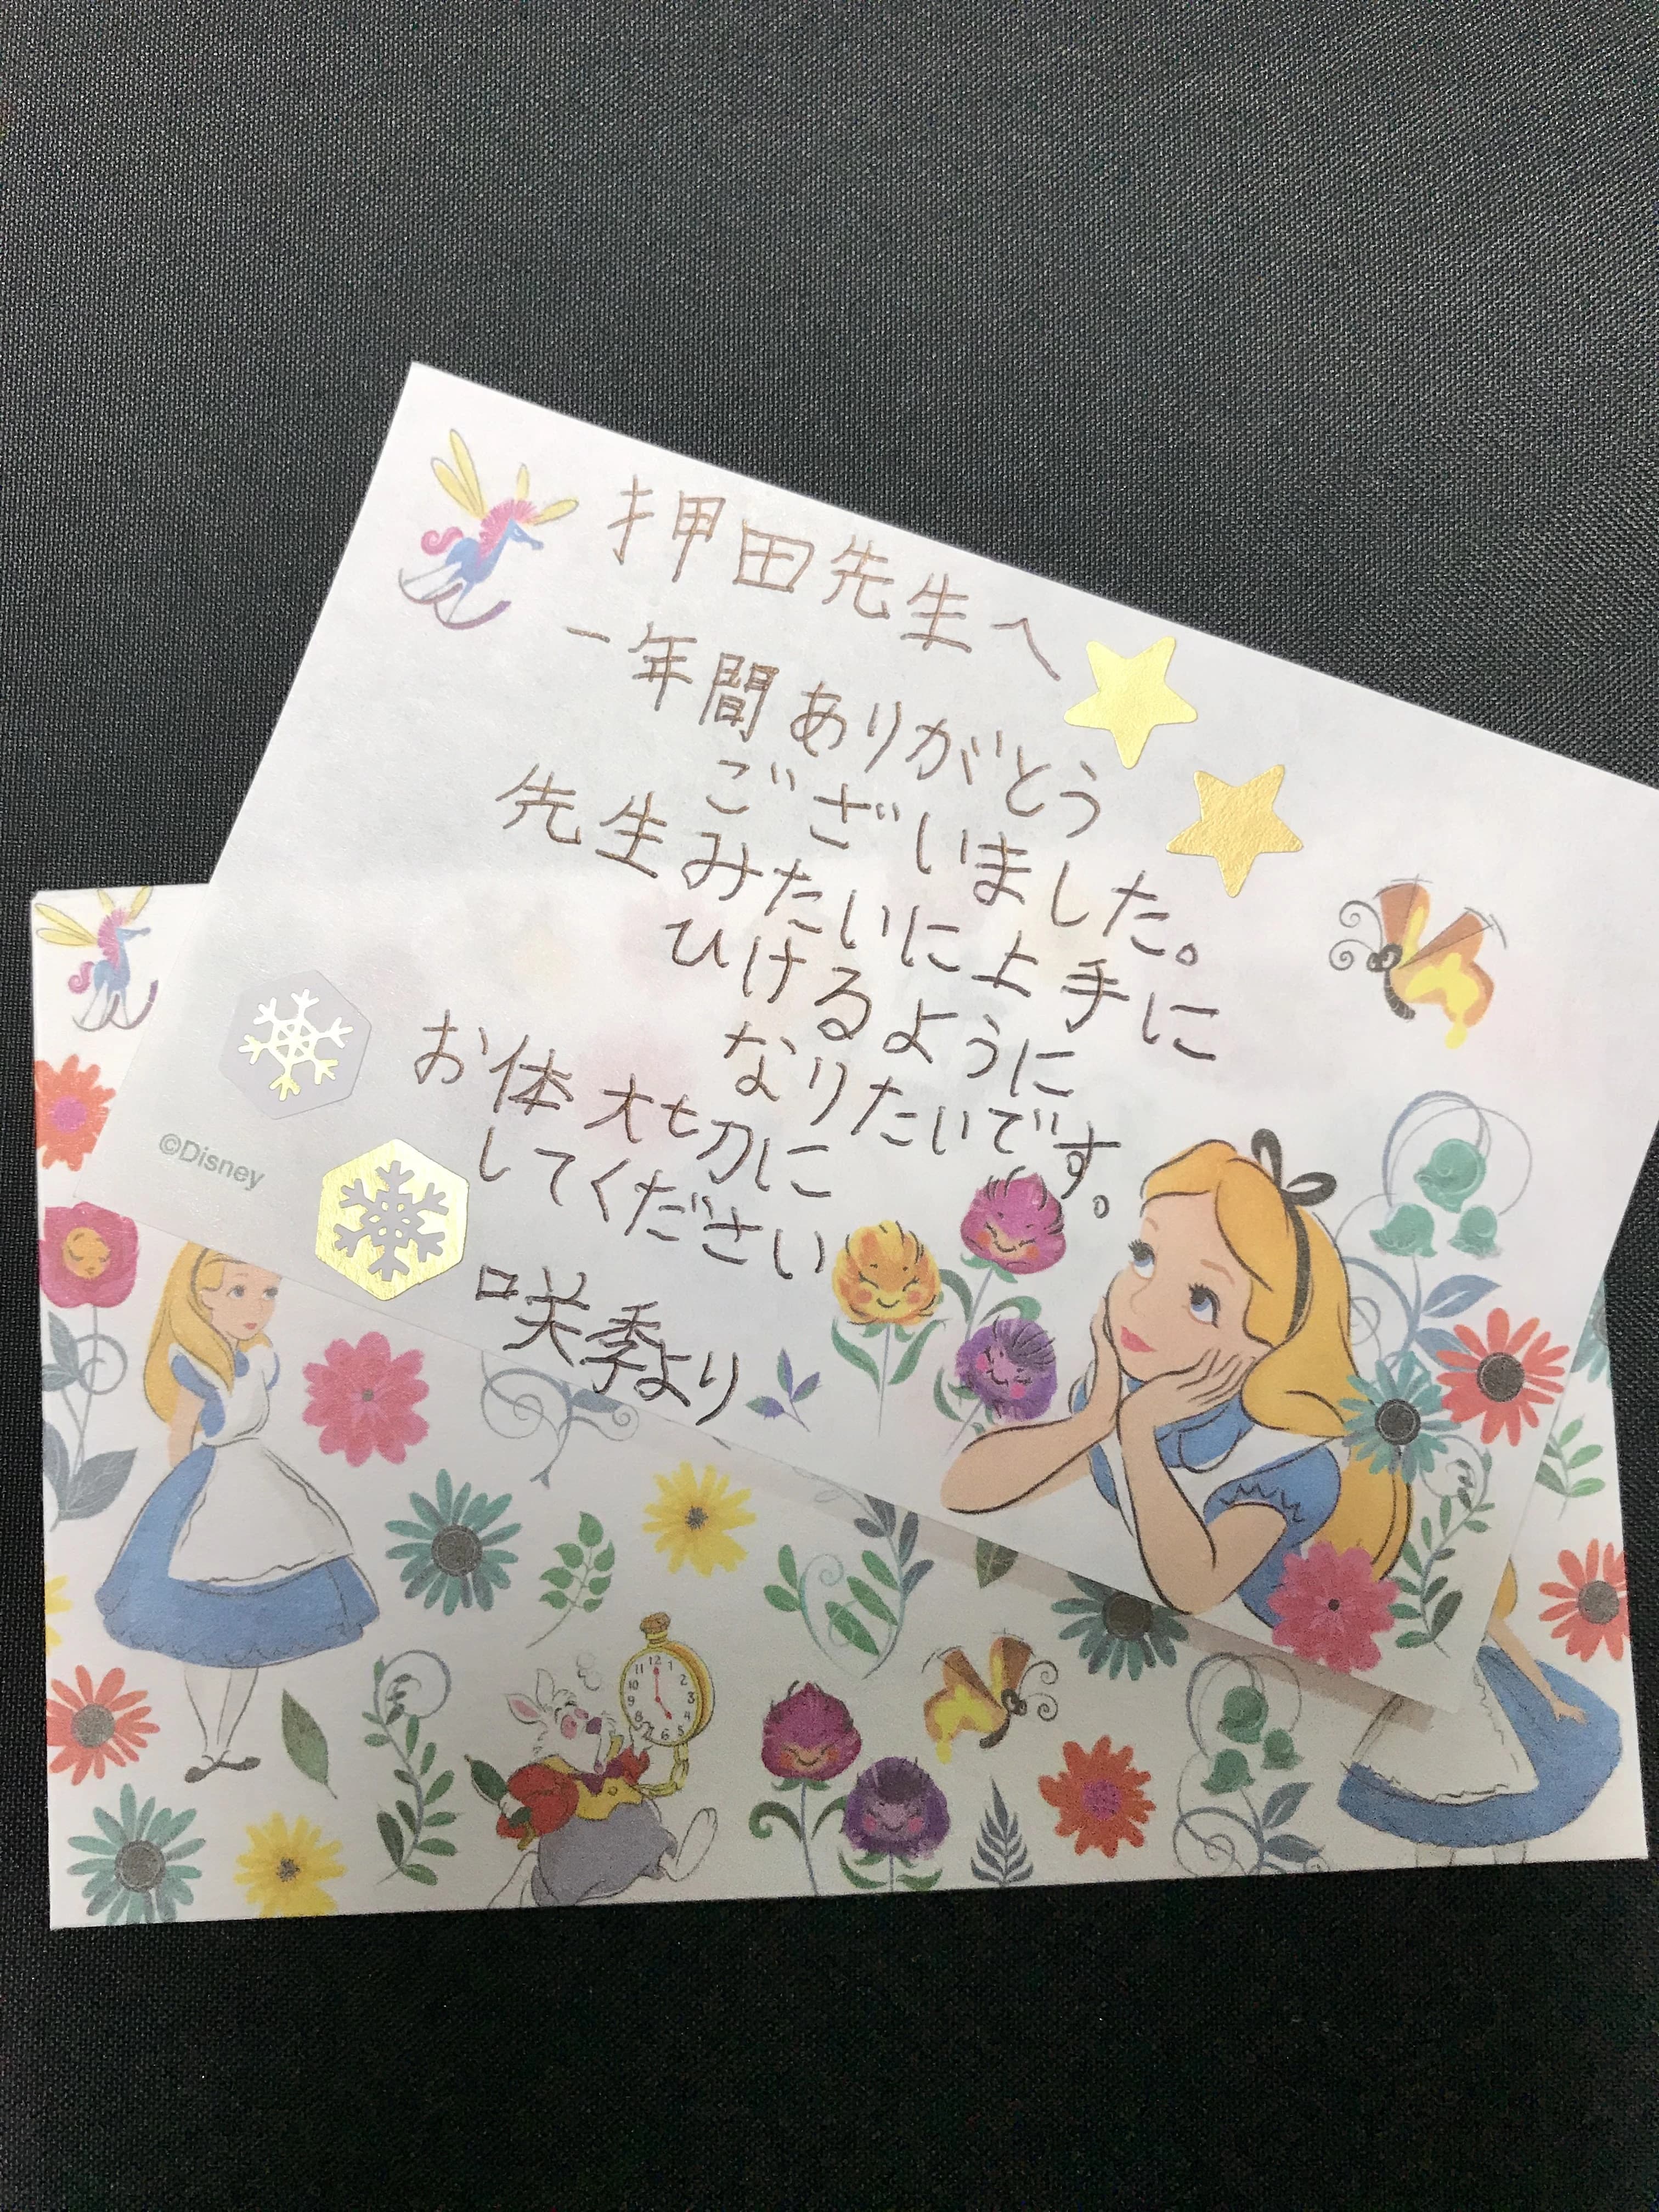 押田先生へ
一年間ありがとう
ございました。
先生みたいに上手に
ひけるように
なりたいです。
お体大切に
してください
咲季より
©Disney
11 12 1
10 2
9 3
8 4
7 6 5